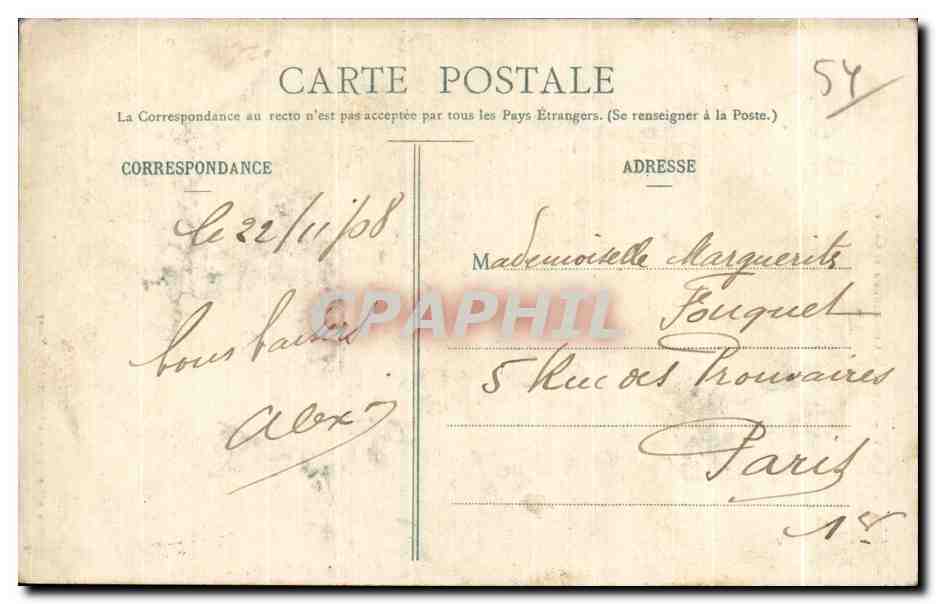 54
CARTE POSTALE
La Correspondance au recto n'est pas acceptée par tous les Pays Étrangers. (Se renseigner à la Poste.)
CORRESPONDANCE
le 22/11/08
bons baisers
Alex
ADRESSE
Mademoiselle Marguerite
Fouquet
5 Rue des Prouvaires
Paris
1er
CPAPHIL